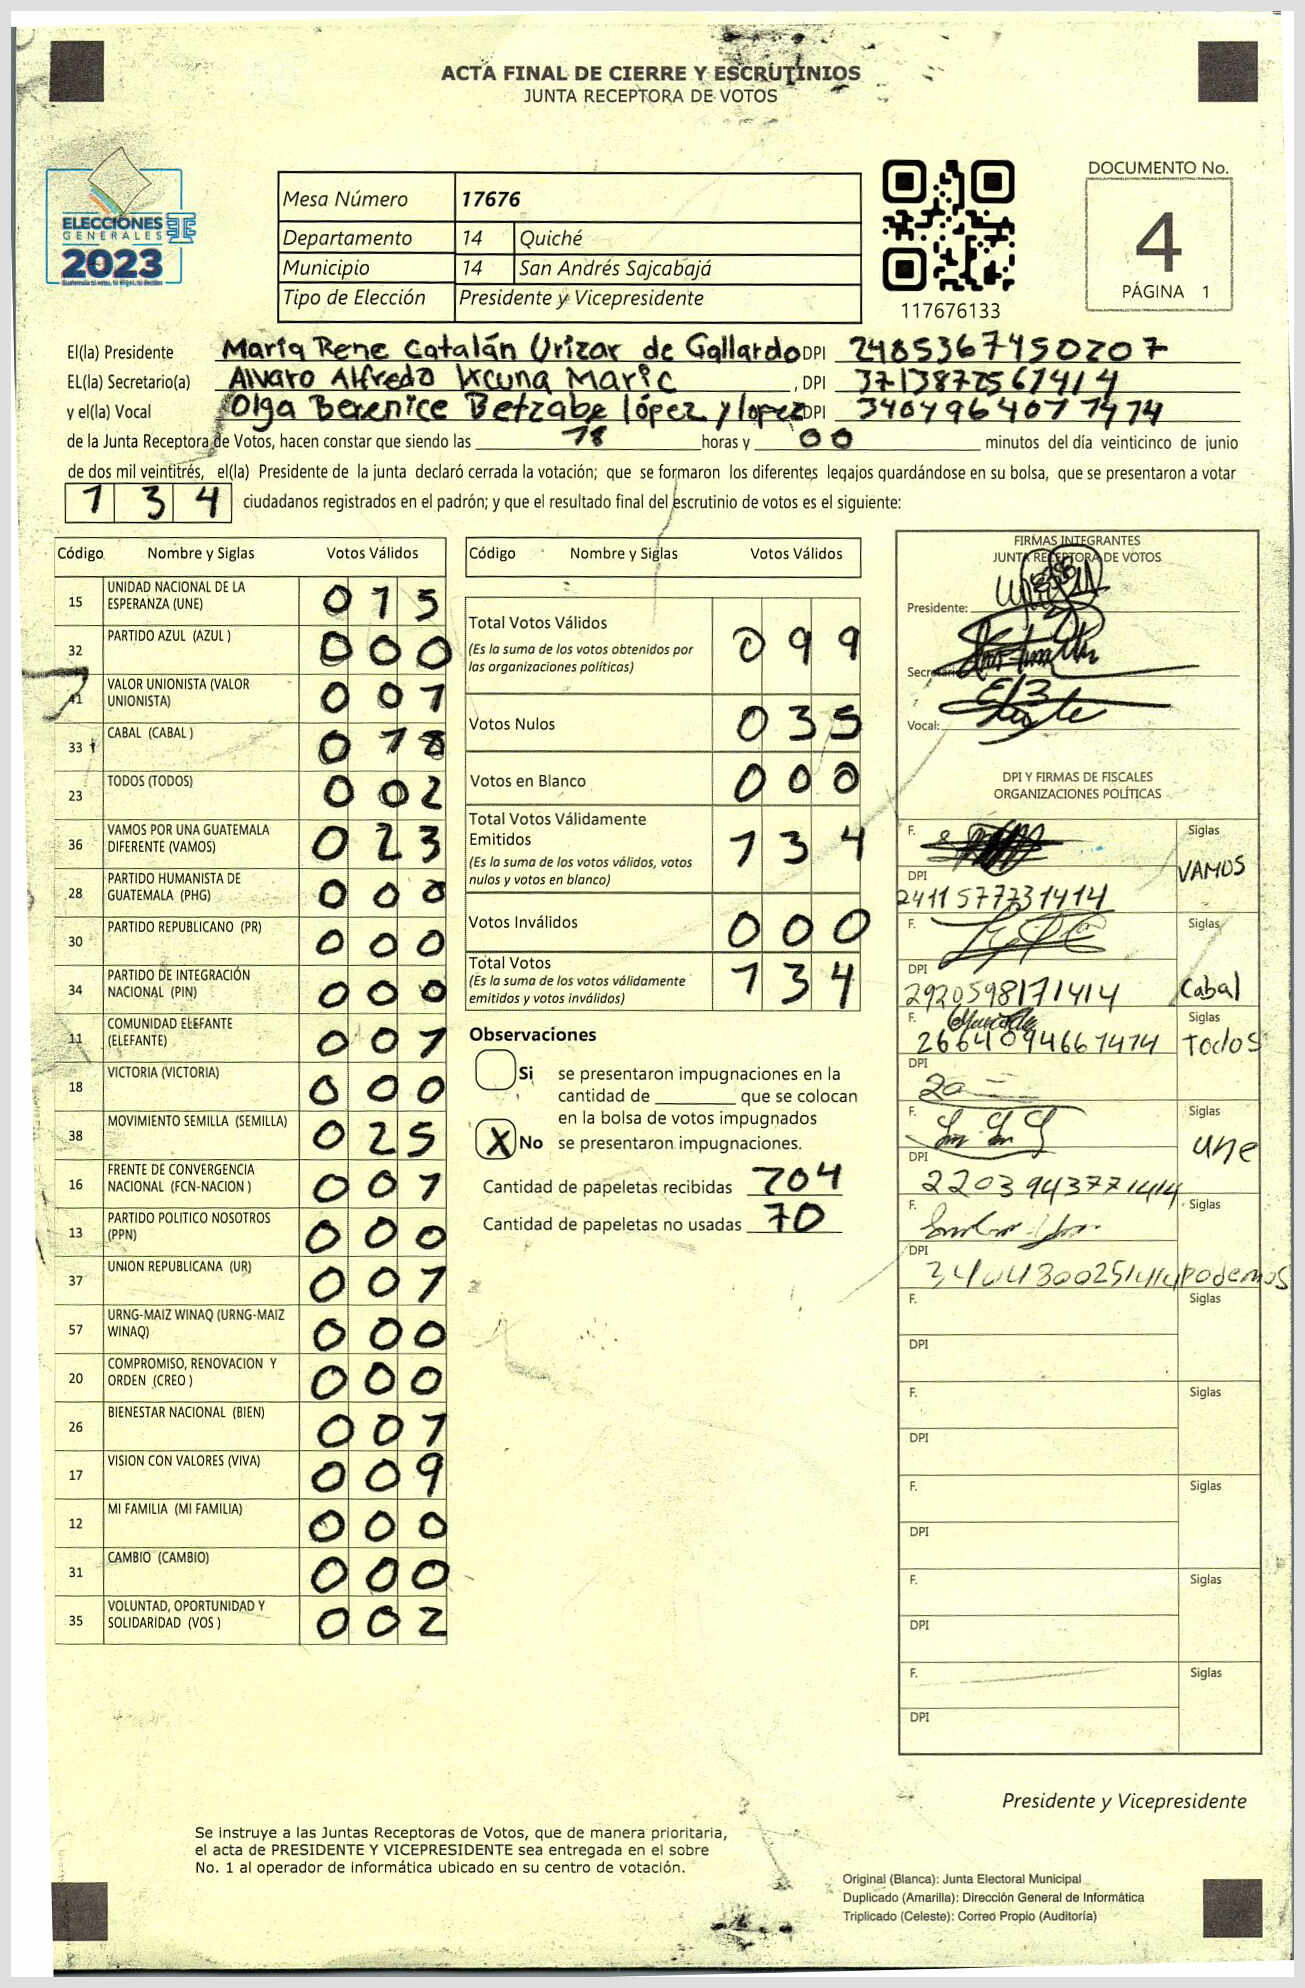 ACTA FINAL DE CIERRE Y ESCRUTINIOS
JUNTA RECEPTORA DE VOTOS
ELECCIONES
GENERALES
2023
Mesa Número 17676
Departamento 14 Quiché
Municipio 14 San Andrés Sajcabajá
Tipo de Elección Presidente y Vicepresidente
117676133
DOCUMENTO No.
4
PÁGINA 1
El(la) Presidente María Rene Catalán Urizar de Gallardo DPI 2485367450207
EL(la) Secretario(a) Alvaro Alfredo , DPI
y el(la) Vocal Olga Berenice Betzabe lópez y lopez DPI
de la Junta Receptora de Votos, hacen constar que siendo las 18 horas y 00 minutos del día veinticinco de junio
de dos mil veintitrés, el(la) Presidente de la junta declaró cerrada la votación; que se formaron los diferentes legajos guardándose en su bolsa, que se presentaron a votar
134 ciudadanos registrados en el padrón; y que el resultado final del escrutinio de votos es el siguiente:
Código Nombre y Siglas Votos Válidos
15 UNIDAD NACIONAL DE LA ESPERANZA (UNE) 015
32 PARTIDO AZUL (AZUL ) 000
41 VALOR UNIONISTA (VALOR UNIONISTA) 001
33 CABAL (CABAL ) 018
23 TODOS (TODOS) 002
36 VAMOS POR UNA GUATEMALA DIFERENTE (VAMOS) 023
28 PARTIDO HUMANISTA DE GUATEMALA (PHG) 000
30 PARTIDO REPUBLICANO (PR) 000
34 PARTIDO DE INTEGRACIÓN NACIONAL (PIN) 000
11 COMUNIDAD ELEFANTE (ELEFANTE) 001
18 VICTORIA (VICTORIA) 000
38 MOVIMIENTO SEMILLA (SEMILLA) 025
16 FRENTE DE CONVERGENCIA NACIONAL (FCN-NACION ) 001
13 PARTIDO POLITICO NOSOTROS (PPN) 000
37 UNION REPUBLICANA (UR) 001
57 URNG-MAIZ WINAQ (URNG-MAIZ WINAQ) 000
20 COMPROMISO, RENOVACION Y ORDEN (CREO ) 000
26 BIENESTAR NACIONAL (BIEN) 001
17 VISION CON VALORES (VIVA) 009
12 MI FAMILIA (MI FAMILIA) 000
31 CAMBIO (CAMBIO) 000
35 VOLUNTAD, OPORTUNIDAD Y SOLIDARIDAD (VOS ) 002
Código Nombre y Siglas Votos Válidos
Total Votos Válidos 099
(Es la suma de los votos obtenidos por
las organizaciones políticas)
Votos Nulos 035
Votos en Blanco 000
Total Votos Válidamente
Emitidos 134
(Es la suma de los votos válidos, votos
nulos y votos en blanco)
Votos Inválidos 000
Total Votos 134
(Es la suma de los votos válidamente
emitidos y votos inválidos)
Observaciones
Si se presentaron impugnaciones en la
cantidad de ________ que se colocan
en la bolsa de votos impugnados
X No se presentaron impugnaciones.
Cantidad de papeletas recibidas 204
Cantidad de papeletas no usadas 70
FIRMAS INTEGRANTES
JUNTA RECEPTORA DE VOTOS
Presidente:
Vocal:
DPI Y FIRMAS DE FISCALES
ORGANIZACIONES POLÍTICAS
F. Siglas
VAMOS
DPI
2411577731414
F. Siglas
DPI
2920598171414 Cabal
F. Siglas
2664094661414 Todos
DPI
F. Siglas
une
DPI
2203943771414
F. Siglas
DPI
3404300251414 podemos
F. Siglas
DPI
F. Siglas
DPI
F. Siglas
DPI
F. Siglas
DPI
F. Siglas
DPI
Presidente y Vicepresidente
Se instruye a las Juntas Receptoras de Votos, que de manera prioritaria,
el acta de PRESIDENTE Y VICEPRESIDENTE sea entregada en el sobre
No. 1 al operador de informática ubicado en su centro de votación.
Original (Blanca): Junta Electoral Municipal
Duplicado (Amarilla): Dirección General de Informática
Triplicado (Celeste): Correo Propio (Auditoría)